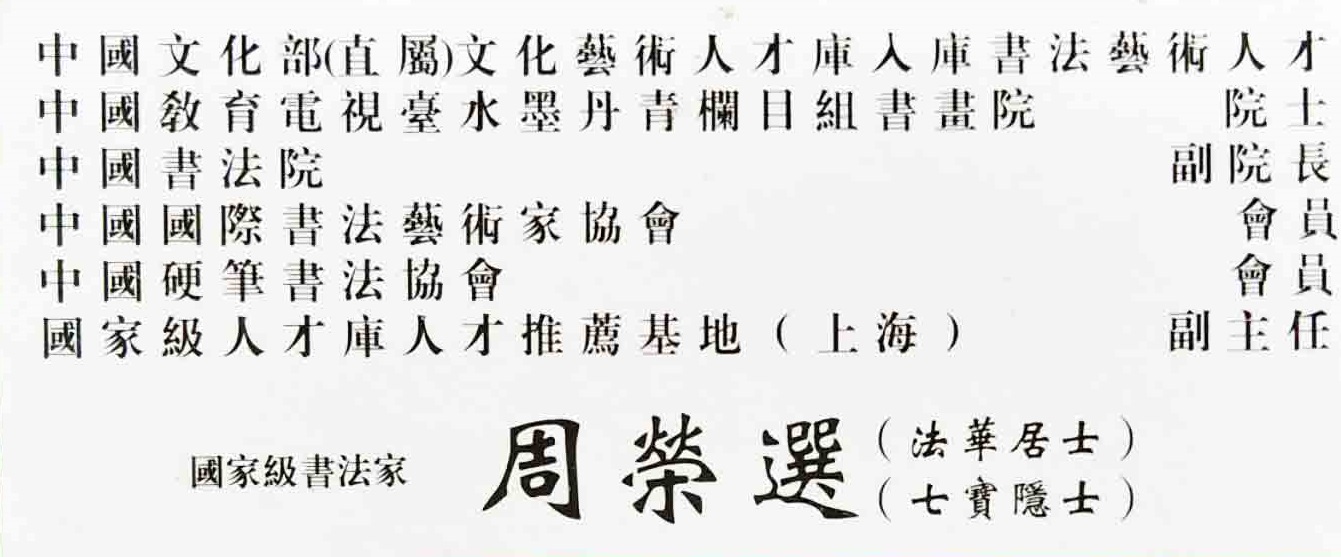 中國文化部(直屬)文化藝術人才庫入庫書法藝術人才
中國教育電視臺水墨丹青欄目組書畫院 院士
中國書法院 副院長
中國國際書法藝術家協會 會員
中國硬筆書法協會 會員
國家級人才庫人才推薦基地（上海） 副主任
國家級書法家 周榮選
（法華居士）
（七寶隱士）